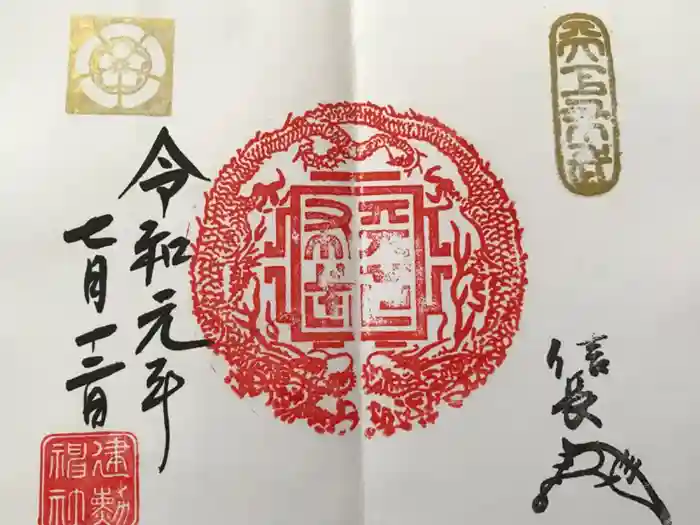 天下布武
天下布武
信長
令和元年
七月十三日
建勲神社